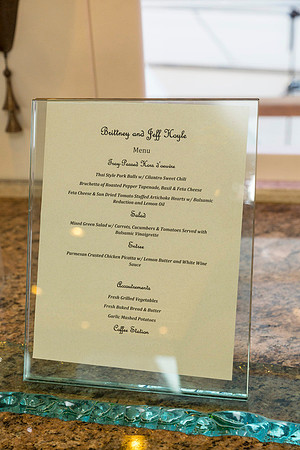 Brittney and Jeff Hoyle
Menu
Tray Passed Hors d'oeuvre
Thai Style Pork Balls w/ Cilantro Sweet Chili
Bruchetta of Roasted Pepper Tapenade, Basil & Feta Cheese
Feta Cheese & Sun Dried Tomato Stuffed Artichoke Hearts w/ Balsamic
Reduction and Lemon Oil
Salad
Mixed Green Salad w/ Carrots, Cucumbers & Tomatoes Served with
Balsamic Vinaigrette
Entree
Parmesan Crusted Chicken Picatta w/ Lemon Butter and White Wine
Sauce
Accoutrements
Fresh Grilled Vegetables
Fresh Baked Bread & Butter
Garlic Mashed Potatoes
Coffee Station